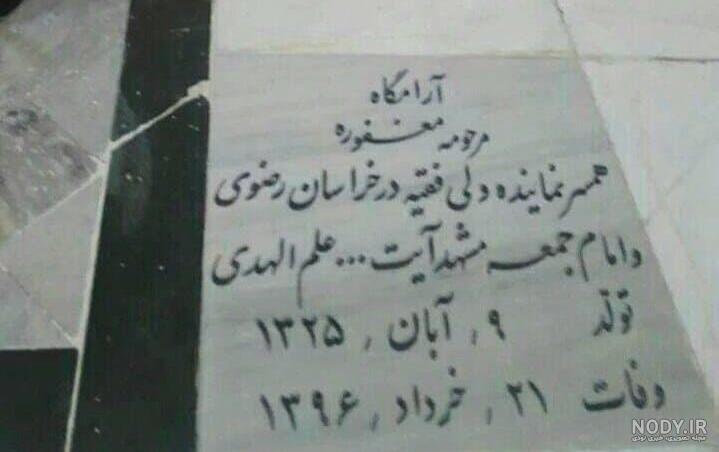 آرامگاه
مرحومه مغفوره
همسر نماینده ولی فقیه در خراسان رضوی
و امام جمعه مشهد آیت ... علم الهدی
تولد ۹ ، آبان ، ۱۳۲۵
وفات ۲۱ ، خرداد ، ۱۳۹۶
NODY.IR
مجله تصویری، خبری نودی